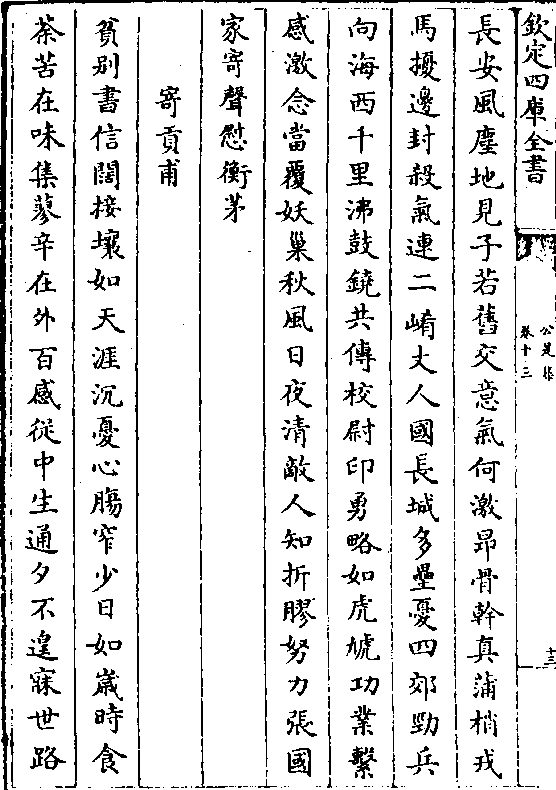 欽定四庫全書
公是集
卷十三
十三
長安風塵地見子若舊交意氣何激昂骨幹真蒲梢戎
馬擾邊封殺氣連二崤丈人國長城多壘憂四郊勁兵
向海西千里沸鼓鐃共傳校尉印勇略如虎虓功業繫
感激念當覆妖巢秋風日夜清敵人知折膠努力張國
家寄聲慰衡茅
寄貢甫
貧别書信闊接壤如天涯沉憂心腸窄少日如嵗時食
荼苦在味集蓼辛在外百感從中生通夕不遑寐世路